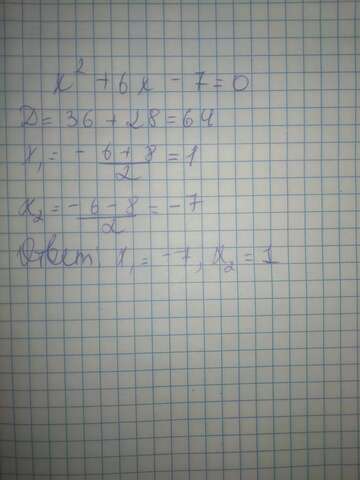 x² + 6x - 7 = 0
D = 36 + 28 = 64
x₁ = - 6 + 8 / 2 = 1
x₂ = - 6 - 8 / 2 = -7
Ответ: x₁ = -7, x₂ = 1